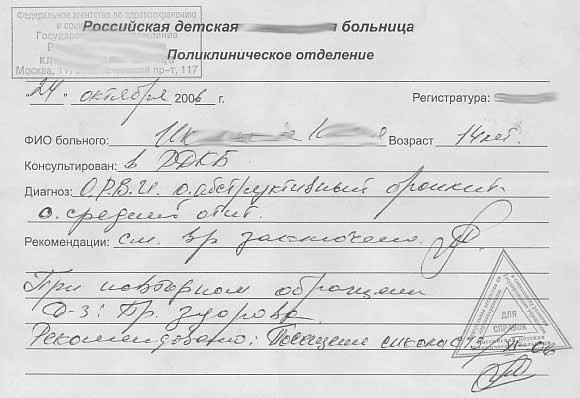 Федеральное агентство по здравоохранению
и социа
Государ ждение
Р
кл больница
Москва, 117 пр-т, 117
Российская детская больница
Поликлиническое отделение
"24" октября 2006 г.
Регистратура:
ФИО больного: Возраст 14 лет.
Консультирован: в РДКБ
Диагноз: О.Р.В.И. о. обструктивный бронхит
о. средний отит.
Рекомендации: см. вр заключено.
При повторном обращении
D-з: Пр. здорова
Рекомендовано: Посещение школы с XI-06
ДЛЯ
СПРАВОК